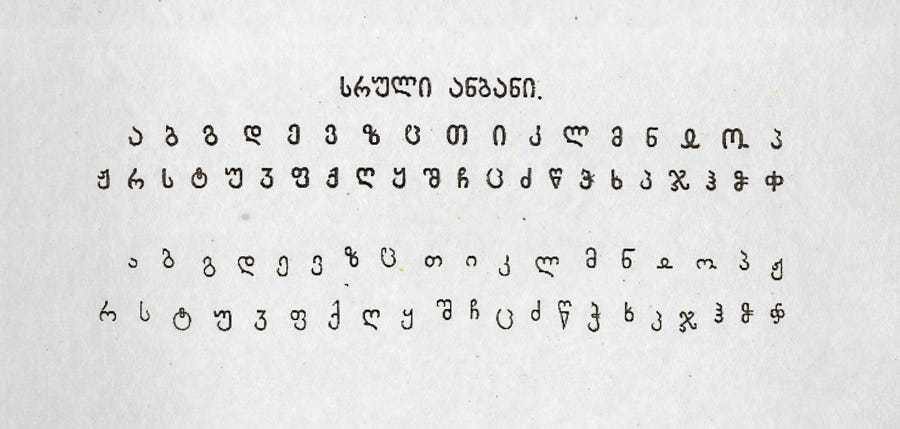 სრული ანბანი.
ა ბ გ დ ე ვ ზ ჱ თ ი კ ლ მ ნ ჲ ო პ
ჟ რ ს ტ უ ჳ ფ ქ ღ ყ შ ჩ ც ძ წ ჭ ხ ჴ ჯ ჰ ჵ ჶ
ა ბ გ დ ე ვ ზ ჱ თ ი კ ლ მ ნ ჲ ო პ ჟ
რ ს ტ უ ჳ ფ ქ ღ ყ შ ჩ ც ძ წ ჭ ხ ჴ ჯ ჰ ჵ ჶ